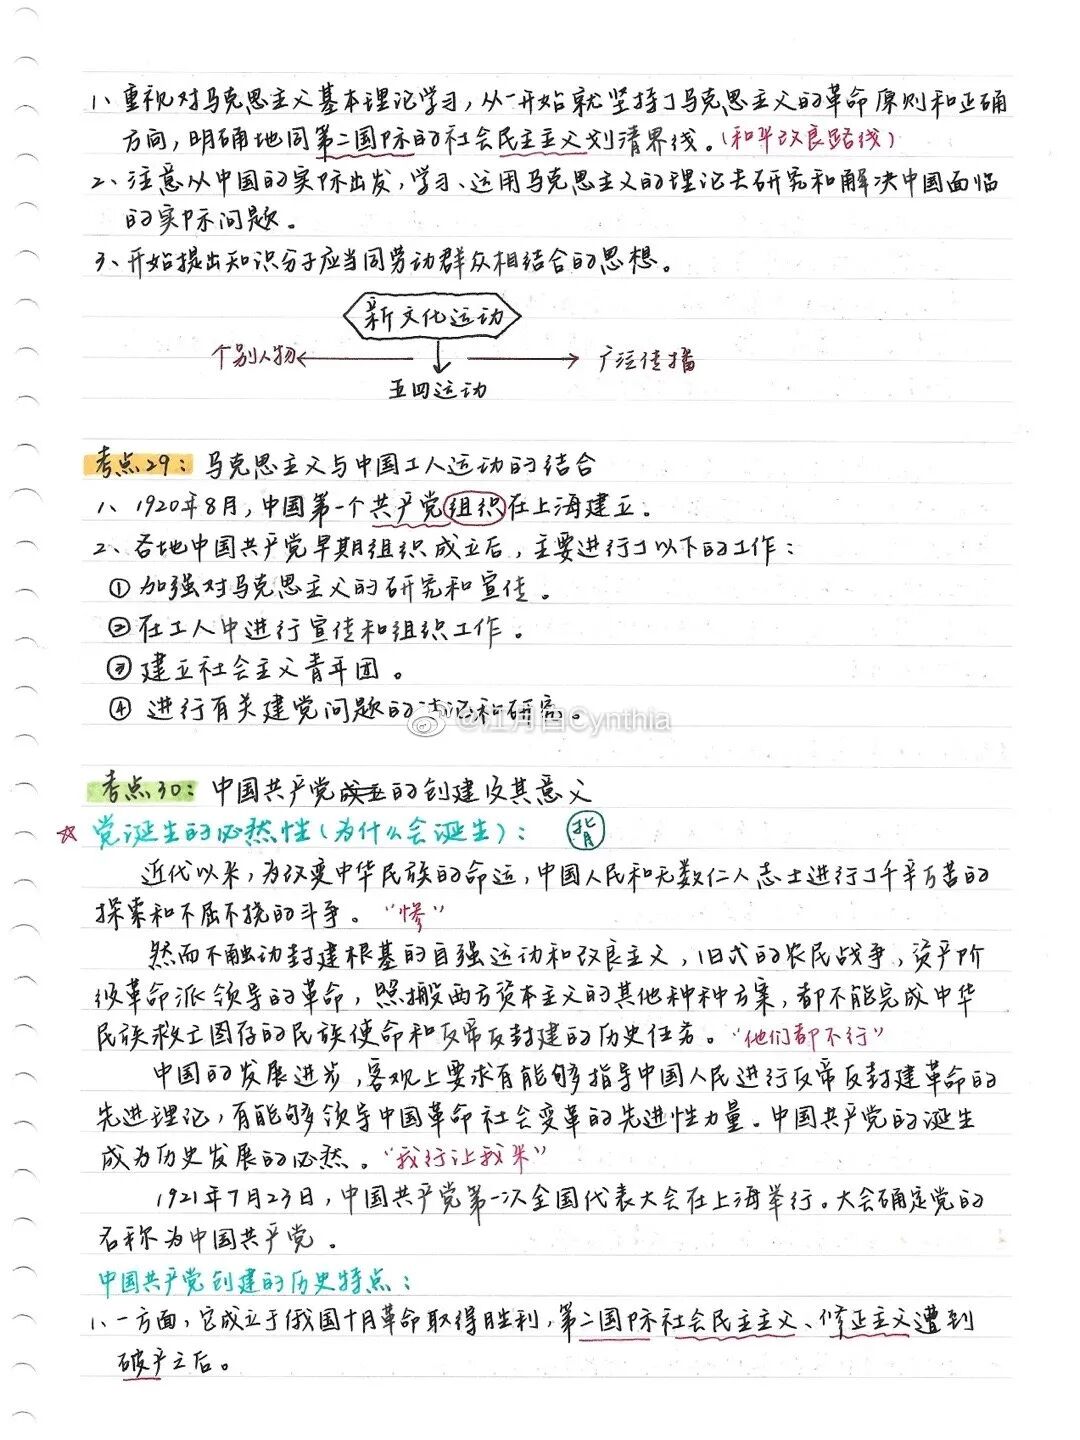 1、重视对马克思主义基本理论学习，从一开始就坚持了马克思主义的革命原则和正确
方向，明确地同第二国际的社会民主主义划清界线。（和平改良路线）
2、注意从中国的实际出发，学习、运用马克思主义的理论去研究和解决中国面临
的实际问题。
3、开始提出知识分子应当同劳动群众相结合的思想。
新文化运动
个别人物
广泛传播
五四运动
考点29：马克思主义与中国工人运动的结合
1、1920年8月，中国第一个共产党组织在上海建立。
2、各地中国共产党早期组织成立后，主要进行了以下的工作：
①加强对马克思主义的研究和宣传。
②在工人中进行宣传和组织工作。
③建立社会主义青年团。
④进行有关建党问题的讨论和研究。
@江月白Cynthia
考点30：中国共产党成立的创建及其意义
☆党诞生的必然性（为什么会诞生）： 背
近代以来，为改变中华民族的命运，中国人民和无数仁人志士进行了千辛万苦的
探索和不屈不挠的斗争。“惨”
然而不触动封建根基的自强运动和改良主义，旧式的农民战争，资产阶
级革命派领导的革命，照搬西方资本主义的其他种种方案，都不能完成中华
民族救亡图存的民族使命和反帝反封建的历史任务。“他们都不行”
中国的发展进步，客观上要求有能够指导中国人民进行反帝反封建革命的
先进理论，有能够领导中国革命社会变革的先进性力量。中国共产党的诞生
成为历史发展的必然。“我行让我来”
1921年7月23日，中国共产党第一次全国代表大会在上海举行。大会确定党的
名称为中国共产党。
中国共产党创建的历史特点：
1、一方面，它成立于俄国十月革命取得胜利，第二国际社会民主主义、修正主义遭到
破产之后。